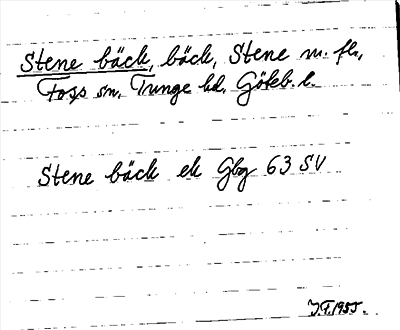 Stene bäck, bäck, Stene m. fl.,
Foss sn, Tunge hd. Göteb. l.
Stene bäck ek Gbg 63 SV
J.F. 1955.